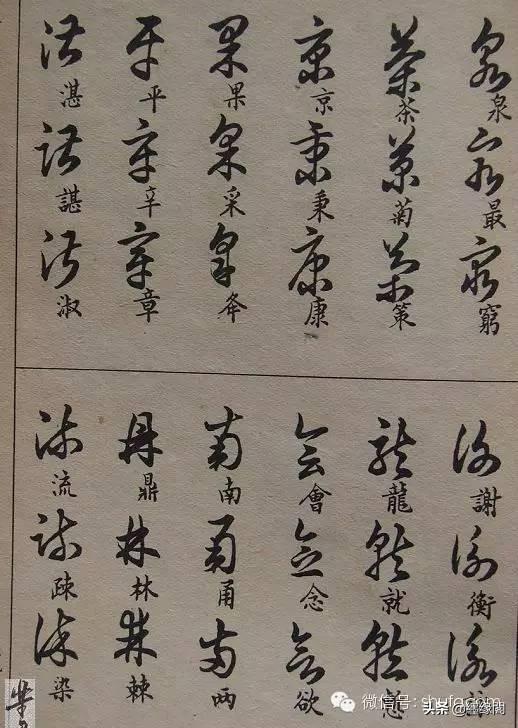 泉最窮
茶菊策
京秉康
果采夅
平辛章
湛諶淑
謝衡
龍就
會念欲
南甬
鼎林棘
流疎染
微信号:
头条